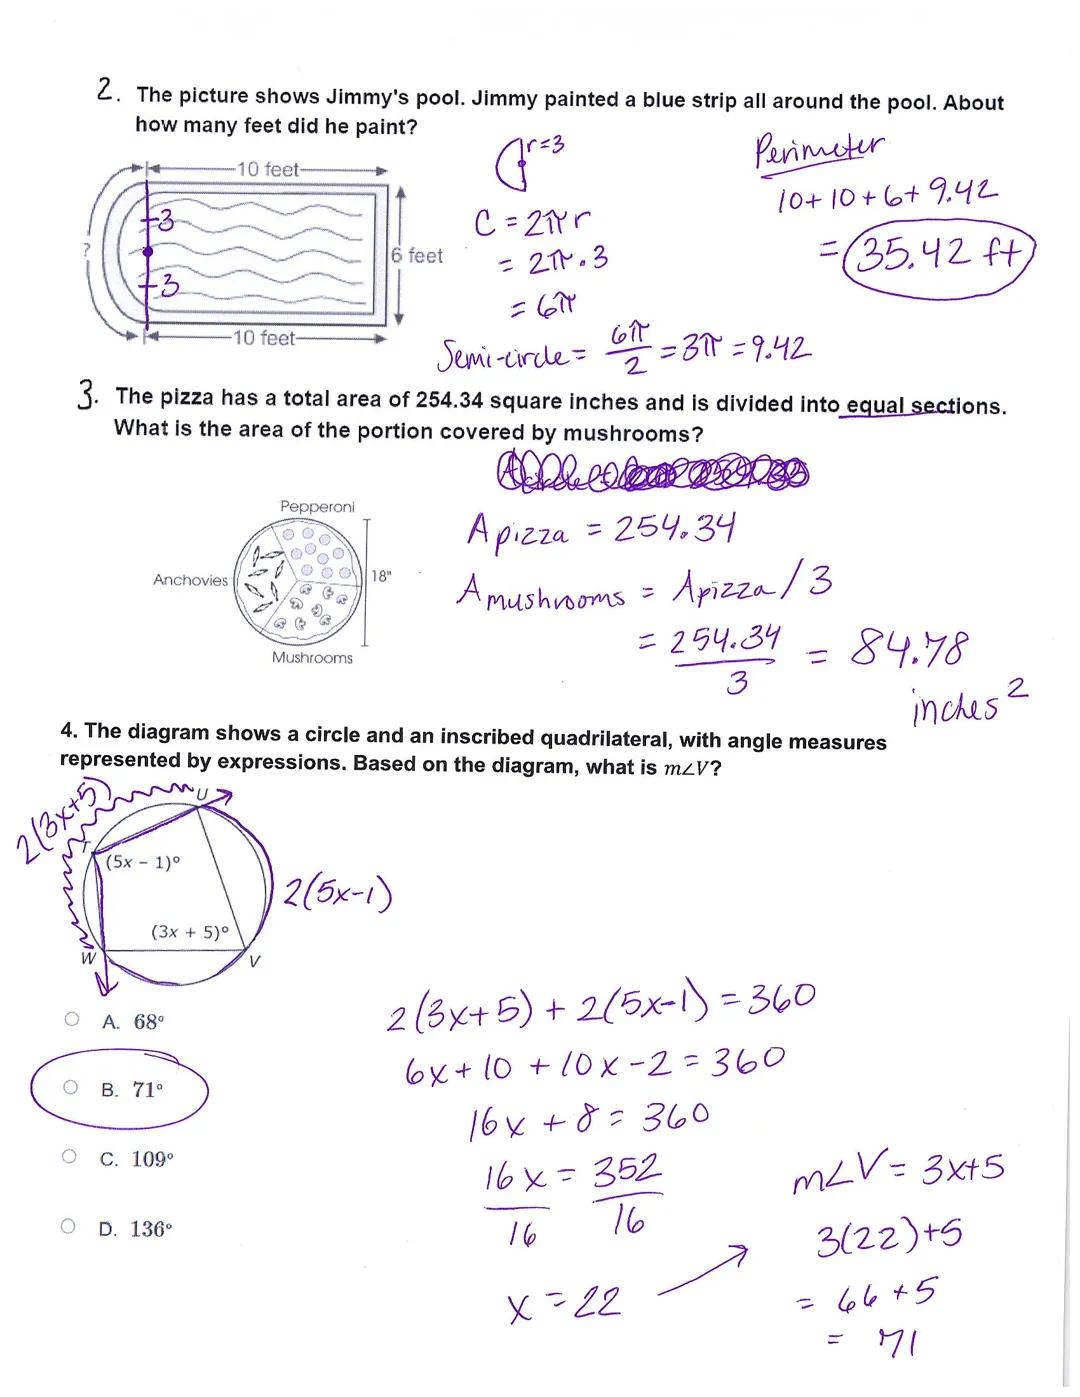 2. The picture shows Jimmy's pool. Jimmy painted a blue strip all around the pool. About
how many feet did he paint?
10 feet
?
3
3
6 feet
10 feet
r=3
C = 2πr
= 2π·3
= 6π
Semi-circle = 6π/2 = 3π = 9.42
Perimeter
10+10+6+9.42
= 35.42 ft
3. The pizza has a total area of 254.34 square inches and is divided into equal sections.
What is the area of the portion covered by mushrooms?
Pepperoni
Anchovies
18"
Mushrooms
A pizza = 254.34
A mushrooms = Apizza/3
= 254.34/3 = 84.78
inches²
4. The diagram shows a circle and an inscribed quadrilateral, with angle measures
represented by expressions. Based on the diagram, what is m∠V?
2(3x+5)
U
T
(5x − 1)°
2(5x-1)
(3x + 5)°
W
V
A. 68°
B. 71°
C. 109°
D. 136°
2(3x+5) + 2(5x-1) = 360
6x+10 +10x-2 = 360
16x + 8 = 360
16x = 352
16 16
x = 22
m∠V = 3x+5
3(22)+5
= 66+5
= 71